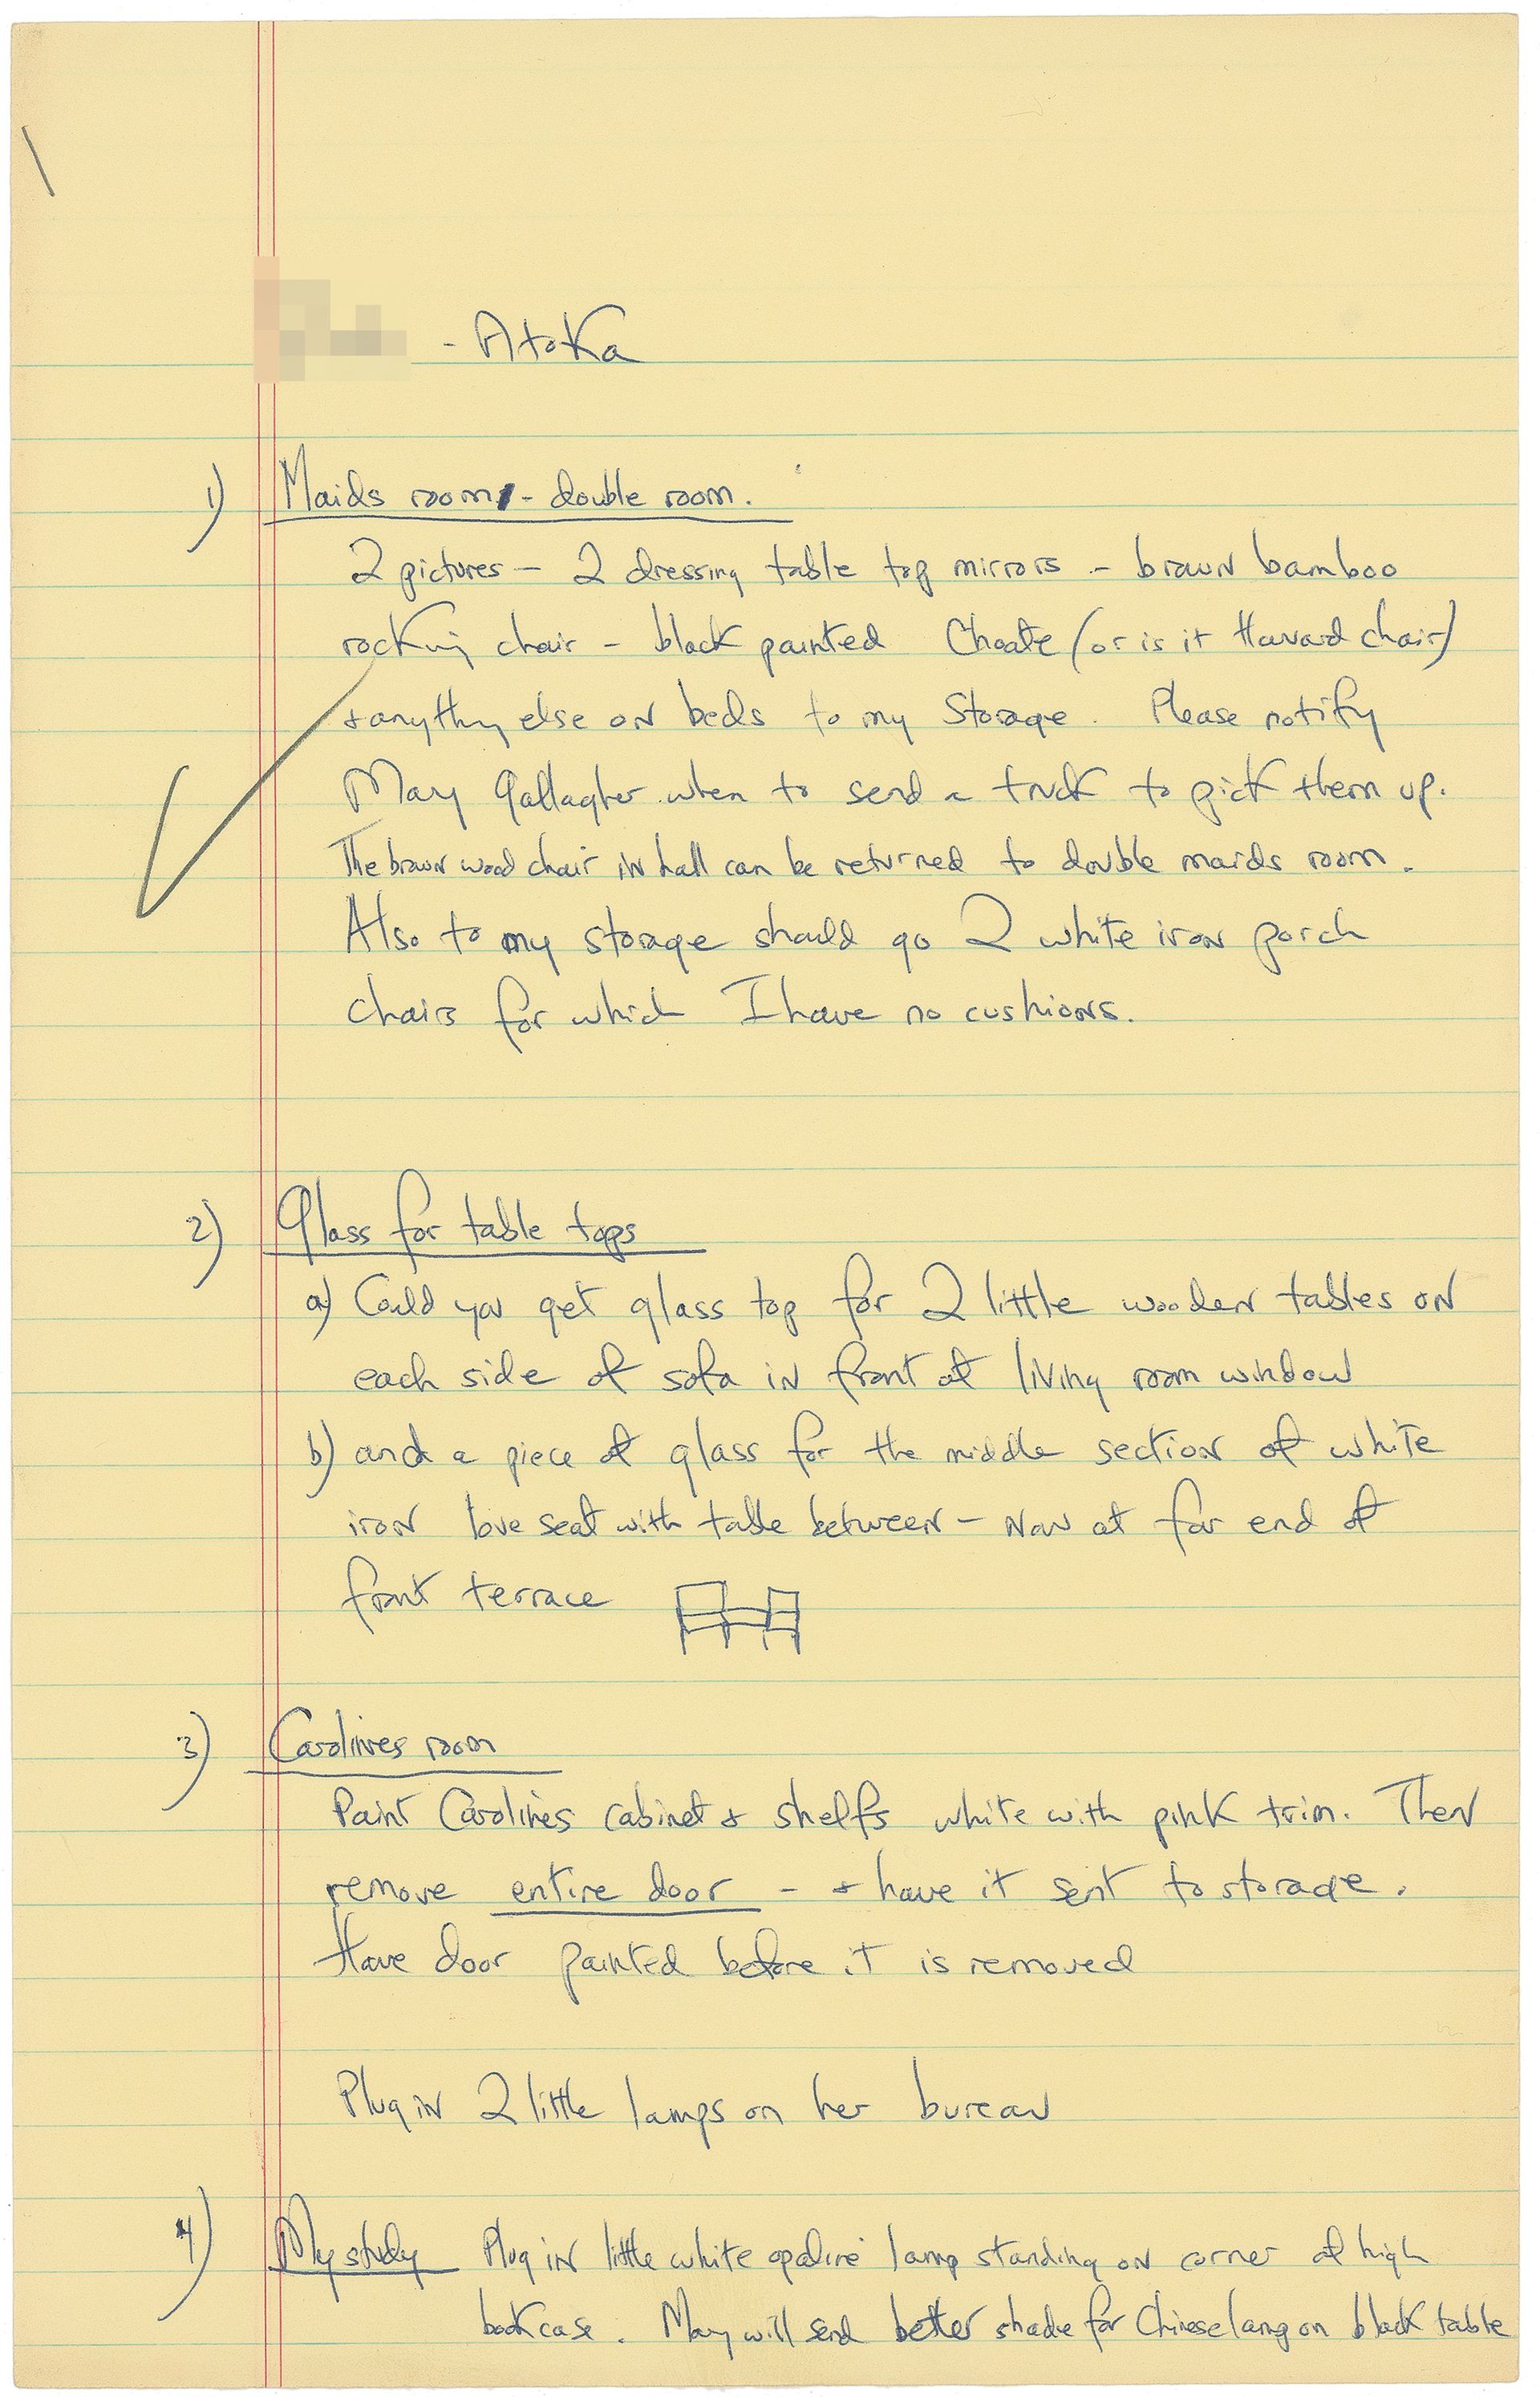 - Atoka
1) Maids room - double room.
2 pictures - 2 dressing table top mirrors - brown bamboo
rocking chair - black painted Choate (or is it Harvard chair)
+ anything else on beds to my storage. Please notify
Mary Gallagher when to send a truck to pick them up.
The brown wood chair in hall can be returned to double maids room.
Also to my storage should go 2 white iron porch
chairs for which I have no cushions.
2) Glass for table tops
a) Could you get glass top for 2 little wooden tables on
each side of sofa in front of living room window
b) and a piece of glass for the middle section of white
iron love seat with table between - now at far end of
front terrace
3) Carolines room
Paint Carolines cabinet + shelfs white with pink trim. Then
remove entire door - + have it sent to storage.
Have door painted before it is removed
Plug in 2 little lamps on her bureau
4) My study Plug in little white opaline lamp standing on corner of high
bookcase. Mary will send better shade for Chinese lamp on black table